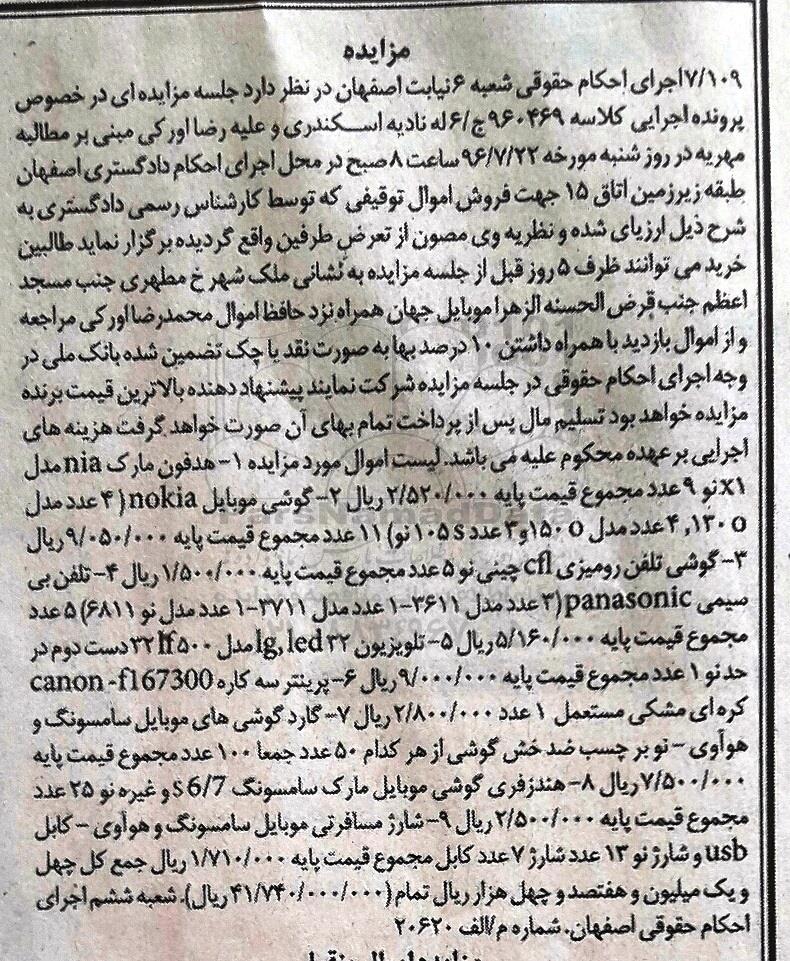 مزایده
۷/۱۰۹اجرای احکام حقوقی شعبه ۶نیابت اصفهان در نظر دارد جلسه مزایده ای در خصوص
پرونده اجرایی کلاسه ۹۶۰۴۶۹ج/۶له نادیه اسکندری و علیه رضا اورکی مبنی بر مطالبه
مهریه در روز شنبه مورخه ۹۶/۷/۲۲ساعت ۸صبح در محل اجرای احکام دادگستری اصفهان
طبقه زیرزمین اتاق ۱۵ جهت فروش اموال توقیفی که توسط کارشناس رسمی دادگستری به
شرح ذیل ارزیای شده و نظریه وی مصون از تعرض طرفین واقع گردیده برگزار نماید طالبین
خرید می توانند ظرف ۵روز قبل از جلسه مزایده به نشانی ملک شهر خ مطهری جنب مسجد
اعظم جنب قرض الحسنه الزهرا موبایل جهان همراه نزد حافظ اموال محمدرضا اورکی مراجعه
و از اموال بازدید با همراه داشتن ۱۰ درصد بها به صورت نقد یا چک تضمین شده بانک ملی در
وجه اجرای احکام حقوقی در جلسه مزایده شرکت نمایند پیشنهاد دهنده بالاترین قیمت برنده
مزایده خواهد بود تسلیم مال پس از پرداخت تمام بهای آن صورت خواهد گرفت هزینه های
اجرایی بر عهده محکوم علیه می باشد. لیست اموال مورد مزایده ۱- هدفون مارک nia مدل
x۱نو ۹ عدد مجموع قیمت پایه ۲/۵۲۰/۰۰۰ ریال ۲- گوشی موبایل nokia (۴ عدد مدل
۱۳۰o, ۴عدد مدل ۱۵۰o و۳ عدد ۱۰۵s نو) ۱۱ عدد مجموع قیمت پایه ۹/۰۵۰/۰۰۰ریال
۳- گوشی تلفن رومیزی cfl چینی نو ۵ عدد مجموع قیمت پایه ۱/۵۰۰/۰۰۰ ریال ۴- تلفن بی
سیمی panasonic (۳ عدد مدل ۳۶۱۱-۱ عدد مدل ۳۷۱۱-۱ عدد مدل نو ۶۸۱۱) ۵ عدد
مجموع قیمت پایه ۵/۱۶۰/۰۰۰ریال ۵- تلویزیون lg, led ۳۲ مدل ۳۲lf۵۰۰ دست دوم در
حد نو ۱ عدد مجموع قیمت پایه ۹/۰۰۰/۰۰۰ریال ۶- پرینتر سه کاره canon -f167300
کره ای مشکی مستعمل ۱ عدد ۲/۸۰۰/۰۰۰ ریال ۷- گارد گوشی های موبایل سامسونگ و
هوآوی - نو بر چسب ضد خش گوشی از هر کدام ۵۰ عدد جمعا ۱۰۰ عدد مجموع قیمت پایه
۷/۵۰۰/۰۰۰ریال ۸- هندزفری گوشی موبایل مارک سامسونگ s6/7 و غیره نو ۲۵ عدد
مجموع قیمت پایه ۲/۵۰۰/۰۰۰ ریال ۹- شارژ مسافرتی موبایل سامسونگ و هوآوی - کابل
usb و شارژ نو ۱۳ عدد شارژ ۷ عدد کابل مجموع قیمت پایه ۱/۷۱۰/۰۰۰ ریال جمع کل چهل
و یک میلیون و هفتصد و چهل هزار ریال تمام (۴۱/۷۴۰/۰۰۰/۰۰۰ ریال). شعبه ششم اجرای
احکام حقوقی اصفهان. شماره م/الف ۲۰۶۲۰